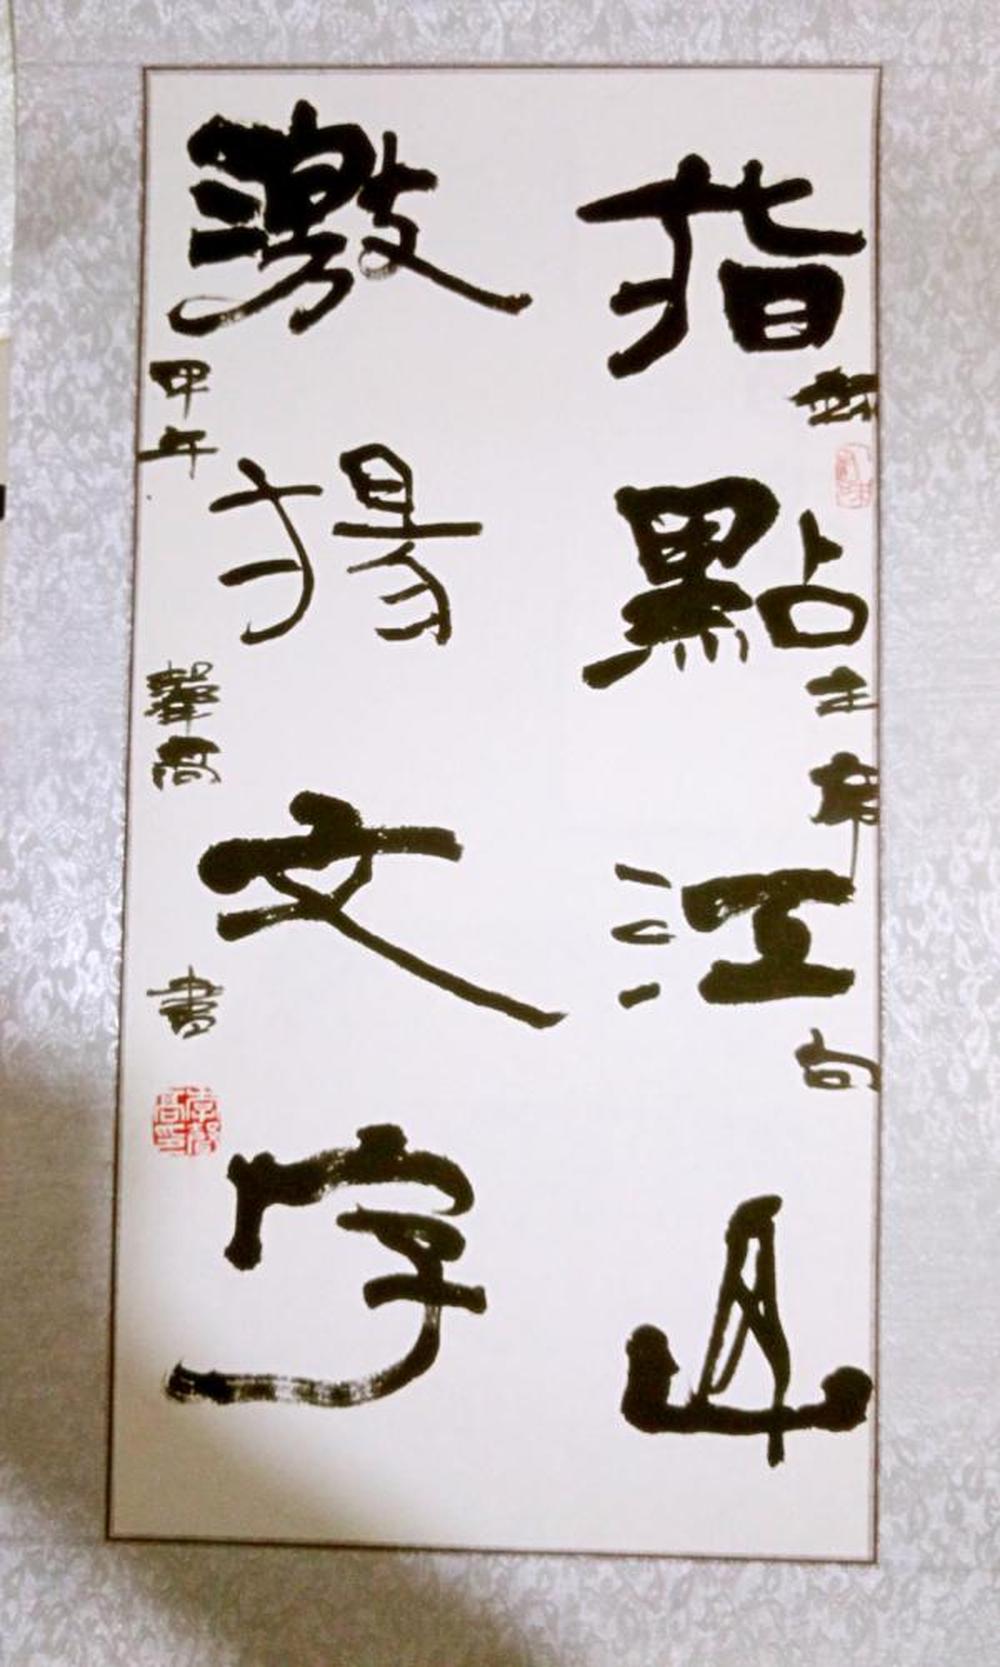 指點江山
主席句
激揚文字
甲午
馨高
書